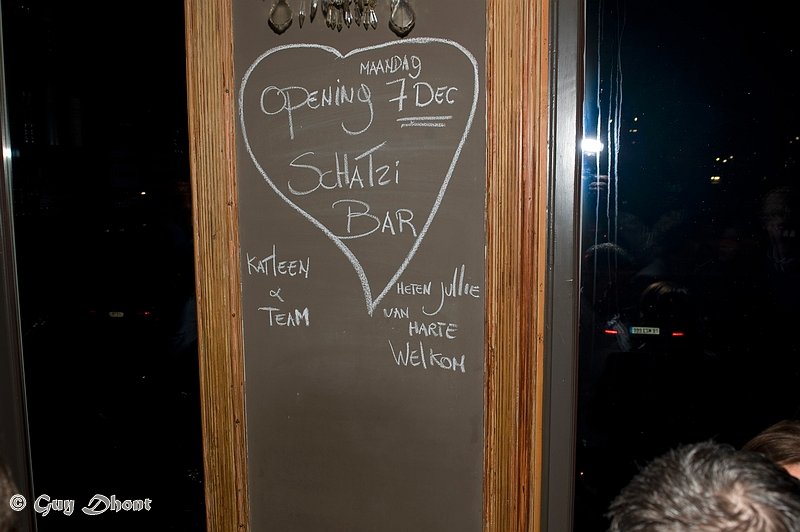 MAANDAG
OPENING 7 DEC
SCHATZI
BAR
KATLEEN
&
TEAM
HETEN JULLIE
VAN
HARTE
WELKOM
© Guy Dhont